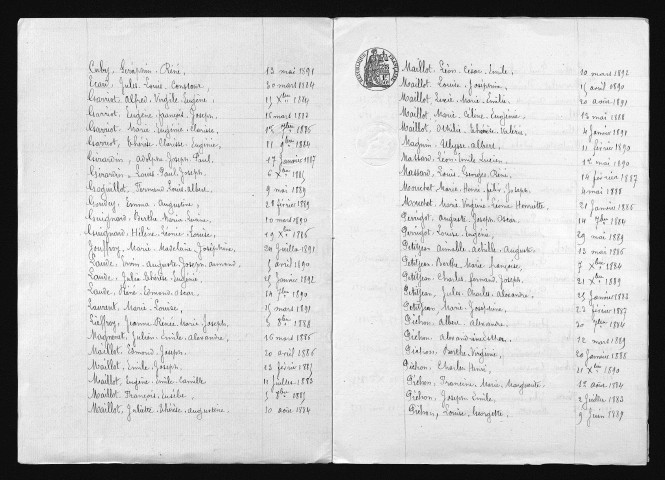 Cuby, Gérardin-Réné, 13 mai 1891
Écard, Jules-Louis-Constour 30 mars 1884
Garriot, Alfred-Virgile-Eugène, 15 Xbre 1884
Garriot, Eugène-François-Joseph, 15 mars 1883
Garriot, Marie-Eugénie-Clarisse, 15 9bre 1886
Garriot, Thérèse-Clarisse-Eugénie, 21 9bre 1884
Girardin, Adolphe-Joseph-Paul. 17 janvier 1887
Girardin, Louis-Paul-Joseph, 6 Xbre 1885
Goguillot, Fernand-Louis-Albert, 9 mai 1889
Gouday, Emma-Augustine, 28 février 1889
Guignard, Berthe-Marie-Louise, 10 mars 1890
Guignard, Hélène-Léonie-Louise, 19 Xbre 1886
Jouffroy, Marie-Madeleine-Joséphine, 24 Juillet 1891
Laude, Auguste-Joseph-Armand, 5 avril 1890
Laude, Julie-Thérèse-Eugénie, janvier 1892
Laude, Réné-Edmond-Oscar, 14 7bre 1890
Laurent, Marie-Louise, 15 mars 1891
Lieffroy, Jeanne-Renée-Marie-Joseph, 5 8bre 1888
Magnenet, Julien-Émile-Alexandre, 16 mars 1886
Maillot, Edmond-Joseph, 20 avril 1886
Maillot, Émile-Joseph, 12 février 1885
Maillot, Eugène-Émile-Camille 11 Juillet 1883
Maillot, François-Eusèbe, 5 8bre 1885
Maillot, Juliette-Thérèse-Augustine, 20 août 1884
Maillot, Léon-César-Émile, 20 mars 1892
Maillot, Louise-Joséphine, 15 avril 1890
Maillot, Lucie-Marie-Émilie, 20 août 1891
Maillot, Marie-Céline-Eugénie, 12 mai 1888
Maillot, Othilie-Thérèse-Valérie, 4 janvier 1891
Magnin, Ulysse-Albert, 11 février 1890
Massard, Léon-Émile-Lucien, 1er mai 1890
Massard, Louis-Georges-Réné, 14 février 1887
Mouchot, Marie-Henri-Félix-Joseph, 4 mai 1888
Mouchot, Marie-Virginie-Léonie-Henriette, 21 janvier 1886
Perrigot, Auguste-Joseph-Oscar, 14 7bre 1884
Perrigot, Louise-Eugénie, 29 mai 1889
Petitjean, Aimable-Achille-Auguste, 13 mai 1886
Petitjean, Berthe-Marie-Françoise, 7 Xbre 1884
Petitjean, Charles-Fernand-Joseph, 21 Xbre 1889
Petitjean, Jules-Charles-Alexandre, 25 janvier 1883
Petitjean, Marie-Joséphine, 23 février 1887
Pichon, Albert-Alexandre, 20 7bre 1884
Pichon, Alexandrine-Max, 12 mars 1889
Pichon, Berthe-Virginie, 20 janvier 1886
Pichon, Charles-Henri, 11 Xbre 1890
Pichon, Francine-Marie-Marguerite, 12 août 1884
Pichon, Joseph-Émile, 2 juillet 1883
Pichon, Louise-Georgette, 9 juin 1889